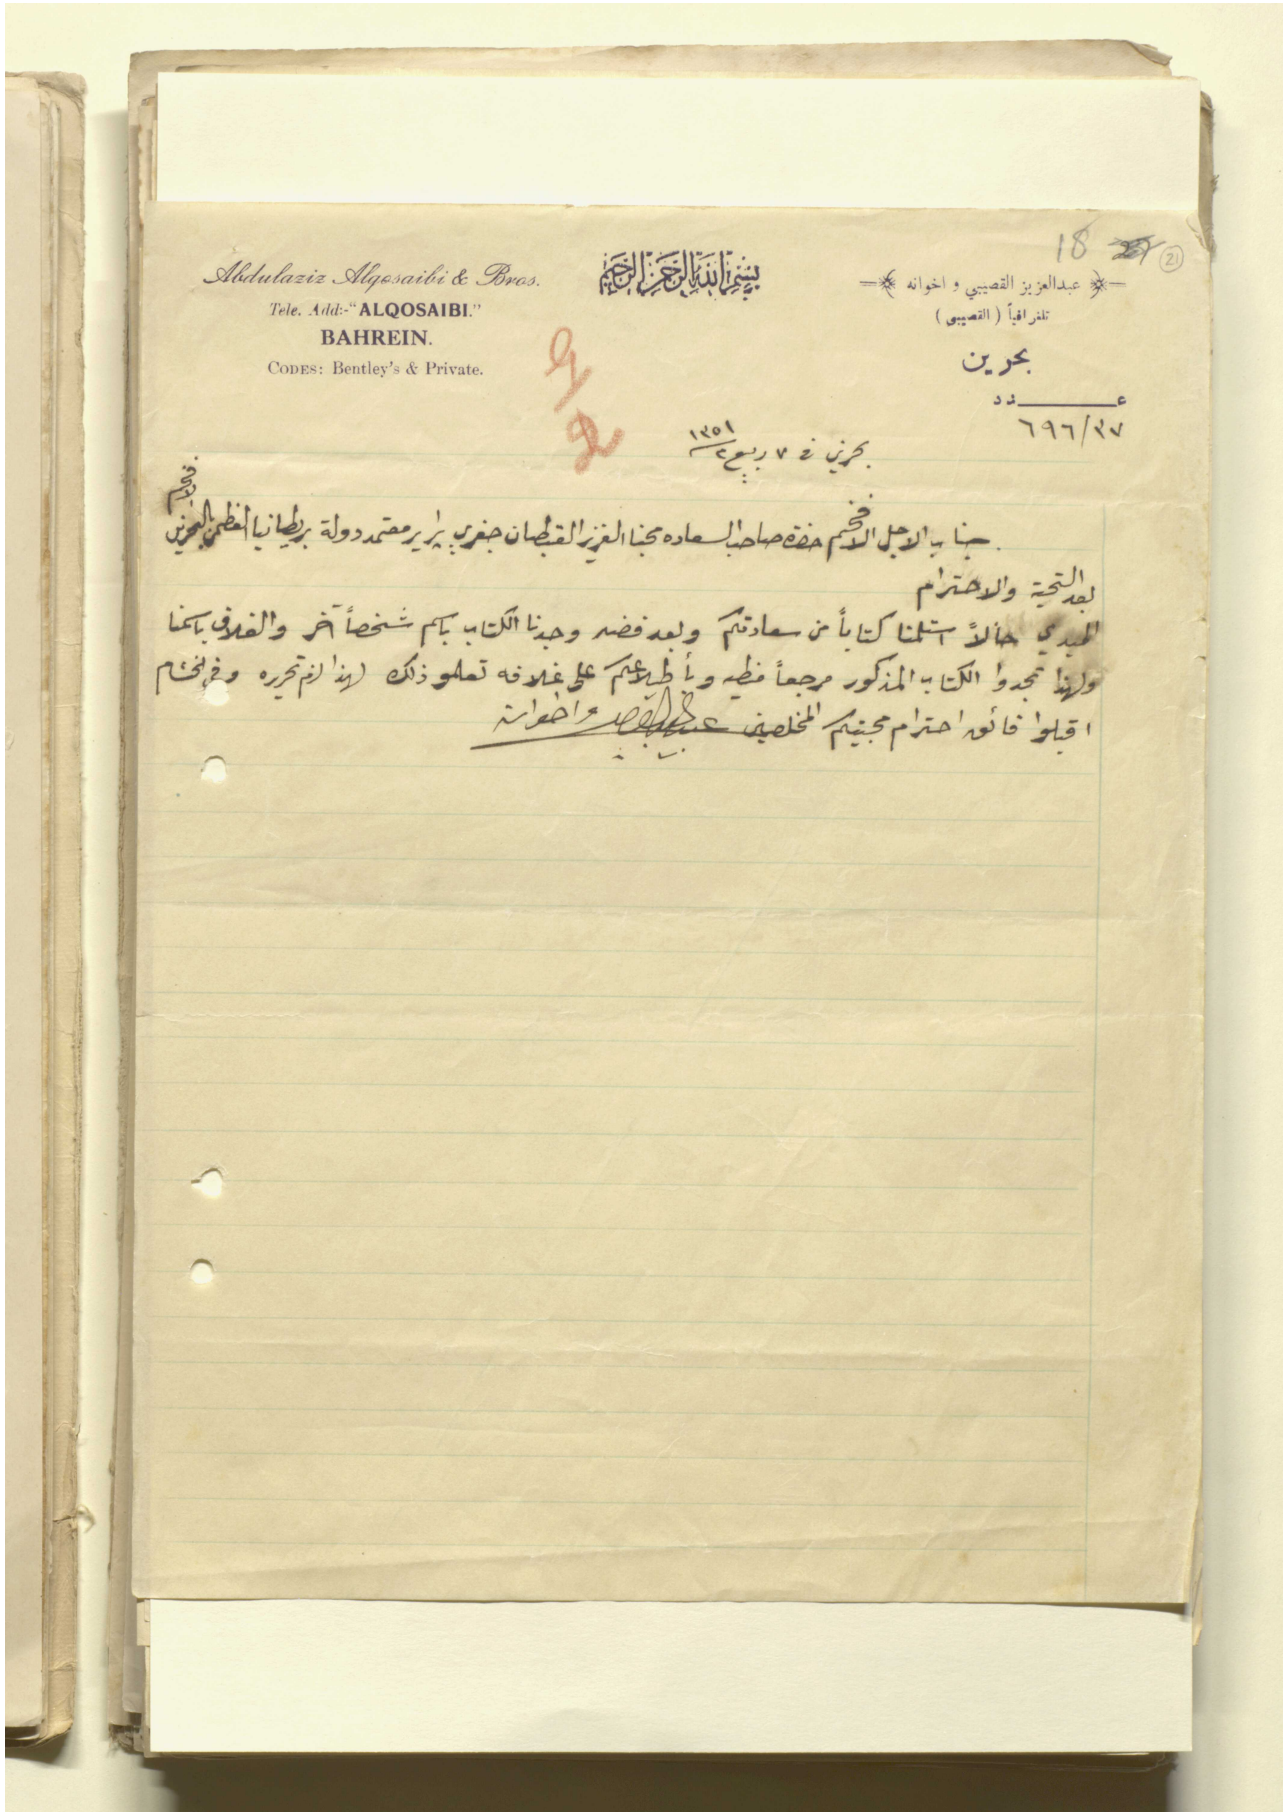 18 27 21
Abdulaziz Alqosaibi & Bros.
Tele. Add:-"ALQOSAIBI."
BAHREIN.
CODES: Bentley's & Private.
بسم الله الرحمن الرحيم
عبدالعزيز القصيبي و اخوانه
تلغرافياً ( القصيبى )
بحرين
عدد
٦٩٦/٣٧
بحرين في ٧ ربيع ٢ ١٣٥١
جناب الاجل الافخم حضرة صاحب السعاده محبنا العزيز القبطان جفري براير معتمد دولة بريطانيا العظمى بالبحرين الافخم
بعد التحية والاحترام
نبدي حالاً استلمنا كتاباً من سعادتكم وبعد فضه وجدنا الكتاب باسم شخصاً آخر والغلاف باسمنا
ولهذا تجدوا الكتاب المذكور مرجعاً بطيه وبأطلاعكم على غلافه تعلمو ذلك لهذا لزم تحريره وفي الختام
اقبلوا فائق احترام محبيكم المخلصين عبدالعزيز القصيبي واخوانه